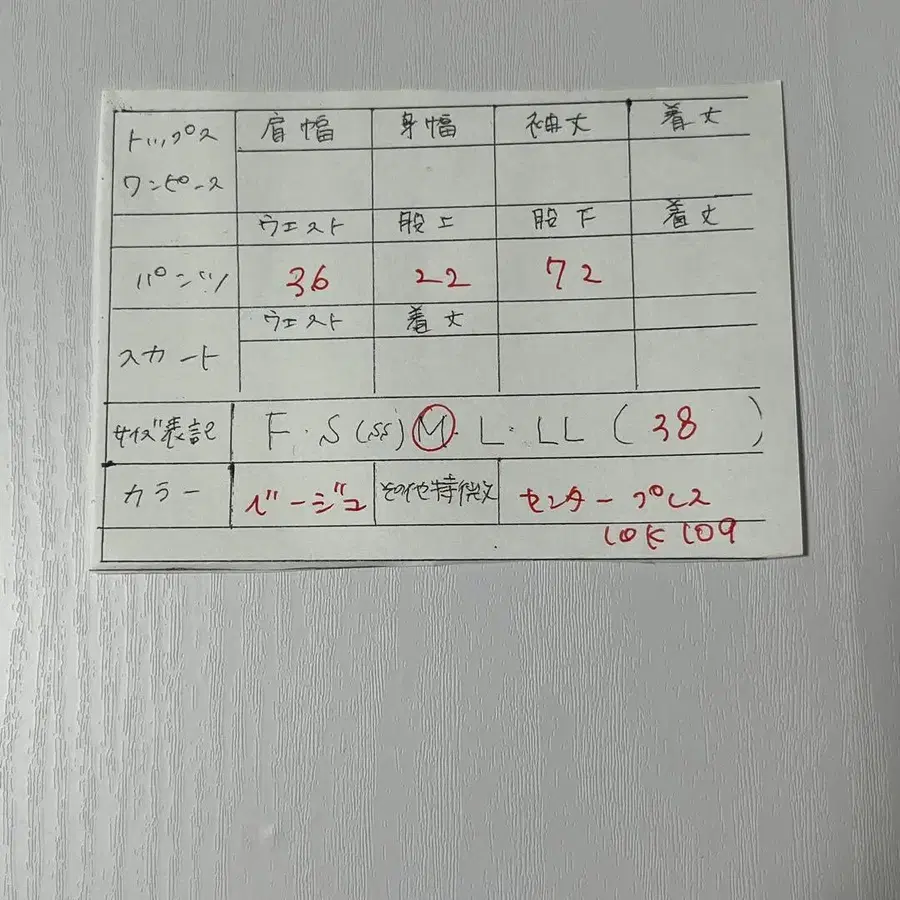 トップス 肩幅 身幅 袖丈 着丈
ワンピース
ウエスト 股上 股下 着丈
パンツ 36 22 72
ウエスト 着丈
スカート
サイズ表記 F・S(SS)M・L・LL(38)
カラー ベージュ その他特徴 センタープレス
LOK109